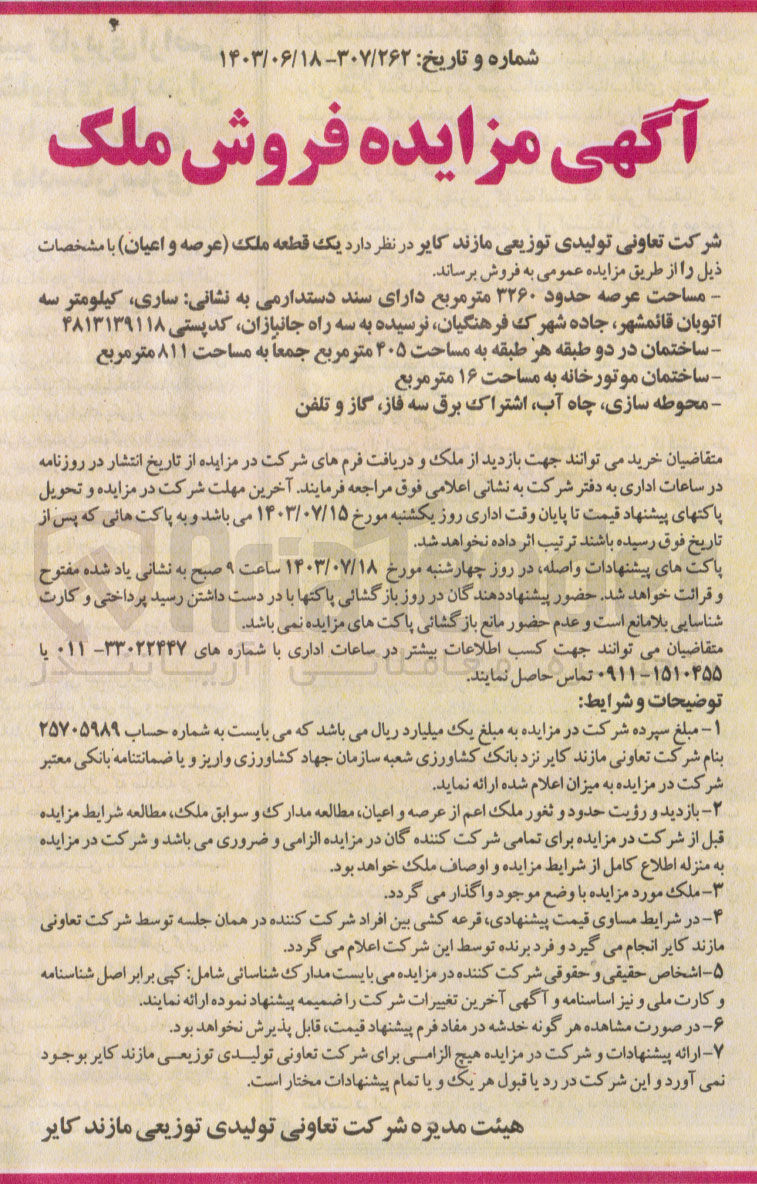 شماره و تاریخ: ۳۰۷/۲۶۲- ۱۴۰۳/۰۶/۱۸
آگهی مزایده فروش ملک
شرکت تعاونی تولیدی توزیعی مازند کایر در نظر دارد یک قطعه ملک (عرصه و اعیان) با مشخصات
ذیل را از طریق مزایده عمومی به فروش برساند.
- مساحت عرصه حدود ۳۲۶۰ مترمربع دارای سند دستدارمی به نشانی: ساری، کیلومتر سه
اتوبان قائمشهر، جاده شهرک فرهنگیان، نرسیده به سه راه جانبازان، کدپستی ۴۸۱۳۱۳۹۱۱۸
- ساختمان در دو طبقه هر طبقه به مساحت ۴۰۵ مترمربع جمعاً به مساحت ۸۱۱ مترمربع
- ساختمان موتورخانه به مساحت ۱۶ مترمربع
- محوطه سازی، چاه آب، اشتراک برق سه فاز، گاز و تلفن
متقاضیان خرید می توانند جهت بازدید از ملک و دریافت فرم های شرکت در مزایده از تاریخ انتشار در روزنامه
در ساعات اداری به دفتر شرکت به نشانی اعلامی فوق مراجعه فرمایند. آخرین مهلت شرکت در مزایده و تحویل
پاکتهای پیشنهاد قیمت تا پایان وقت اداری روز یکشنبه مورخ ۱۴۰۳/۰۷/۱۵ می باشد و به پاکت هائی که پس از
تاریخ فوق رسیده باشند ترتیب اثر داده نخواهد شد.
پاکت های پیشنهادات واصله، در روز چهارشنبه مورخ ۱۴۰۳/۰۷/۱۸ ساعت ۹ صبح به نشانی یاد شده مفتوح
و قرائت خواهد شد. حضور پیشنهاددهندگان در روز بازگشائی پاکتها با در دست داشتن رسید پرداختی و کارت
شناسایی بلامانع است و عدم حضور مانع بازگشائی پاکت های مزایده نمی باشد.
متقاضیان می توانند جهت کسب اطلاعات بیشتر در ساعات اداری با شماره های ۳۳۰۲۲۴۴۷- ۰۱۱ یا
۱۵۱۰۴۵۵-۰۹۱۱ تماس حاصل نمایند.
توضیحات و شرایط:
۱- مبلغ سپرده شرکت در مزایده به مبلغ یک میلیارد ریال می باشد که می بایست به شماره حساب ۲۵۷۰۵۹۸۹
بنام شرکت تعاونی مازند کایر نزد بانک کشاورزی شعبه سازمان جهاد کشاورزی واریز و یا ضمانتنامه بانکی معتبر
شرکت در مزایده به میزان اعلام شده ارائه نماید.
۲- بازدید و رؤیت حدود و ثغور ملک اعم از عرصه و اعیان، مطالعه مدارک و سوابق ملک، مطالعه شرایط مزایده
قبل از شرکت در مزایده برای تمامی شرکت کننده گان در مزایده الزامی و ضروری می باشد و شرکت در مزایده
به منزله اطلاع کامل از شرایط مزایده و اوصاف ملک خواهد بود.
۳- ملک مورد مزایده با وضع موجود واگذار می گردد.
۴- در شرایط مساوی قیمت پیشنهادی، قرعه کشی بین افراد شرکت کننده در همان جلسه توسط شرکت تعاونی
مازند کایر انجام می گیرد و فرد برنده توسط این شرکت اعلام می گردد.
۵- اشخاص حقیقی و حقوقی شرکت کننده در مزایده می بایست مدارک شناسائی شامل: کپی برابر اصل شناسنامه
و کارت ملی و نیز اساسنامه و آگهی آخرین تغییرات شرکت را ضمیمه پیشنهاد نموده ارائه نمایند.
۶- در صورت مشاهده هر گونه خدشه در مفاد فرم پیشنهاد قیمت، قابل پذیرش نخواهد بود.
۷- ارائه پیشنهادات و شرکت در مزایده هیچ الزامی برای شرکت تعاونی تولیدی توزیعی مازند کایر بوجود
نمی آورد و این شرکت در رد یا قبول هر یک و یا تمام پیشنهادات مختار است.
هیئت مدیره شرکت تعاونی تولیدی توزیعی مازند کایر